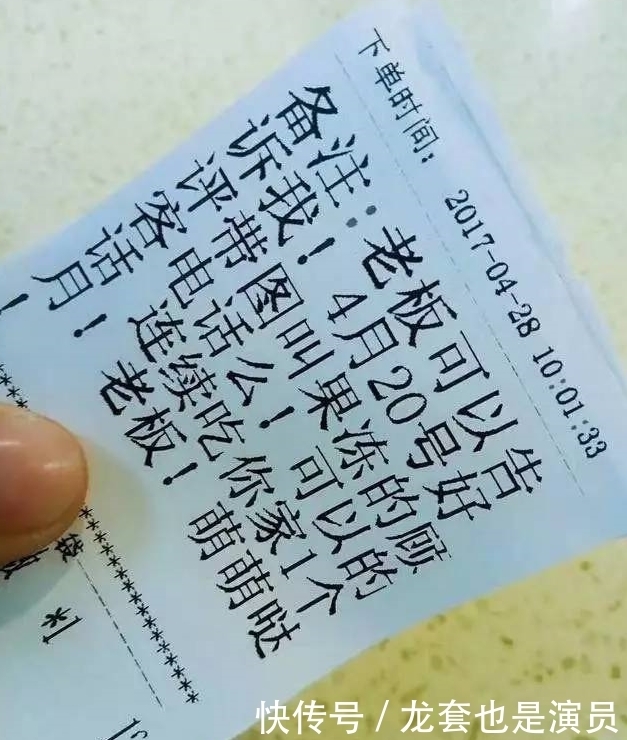 下单时间： 2017-04-28 10:01:33
备注：老板可以告
诉我！4月20号好
评带图叫果冻的顾
客电话么！可以的
话连续吃你家1个
月！老板！萌萌哒
！
袋 *1
快传号 / 龙套也是演员